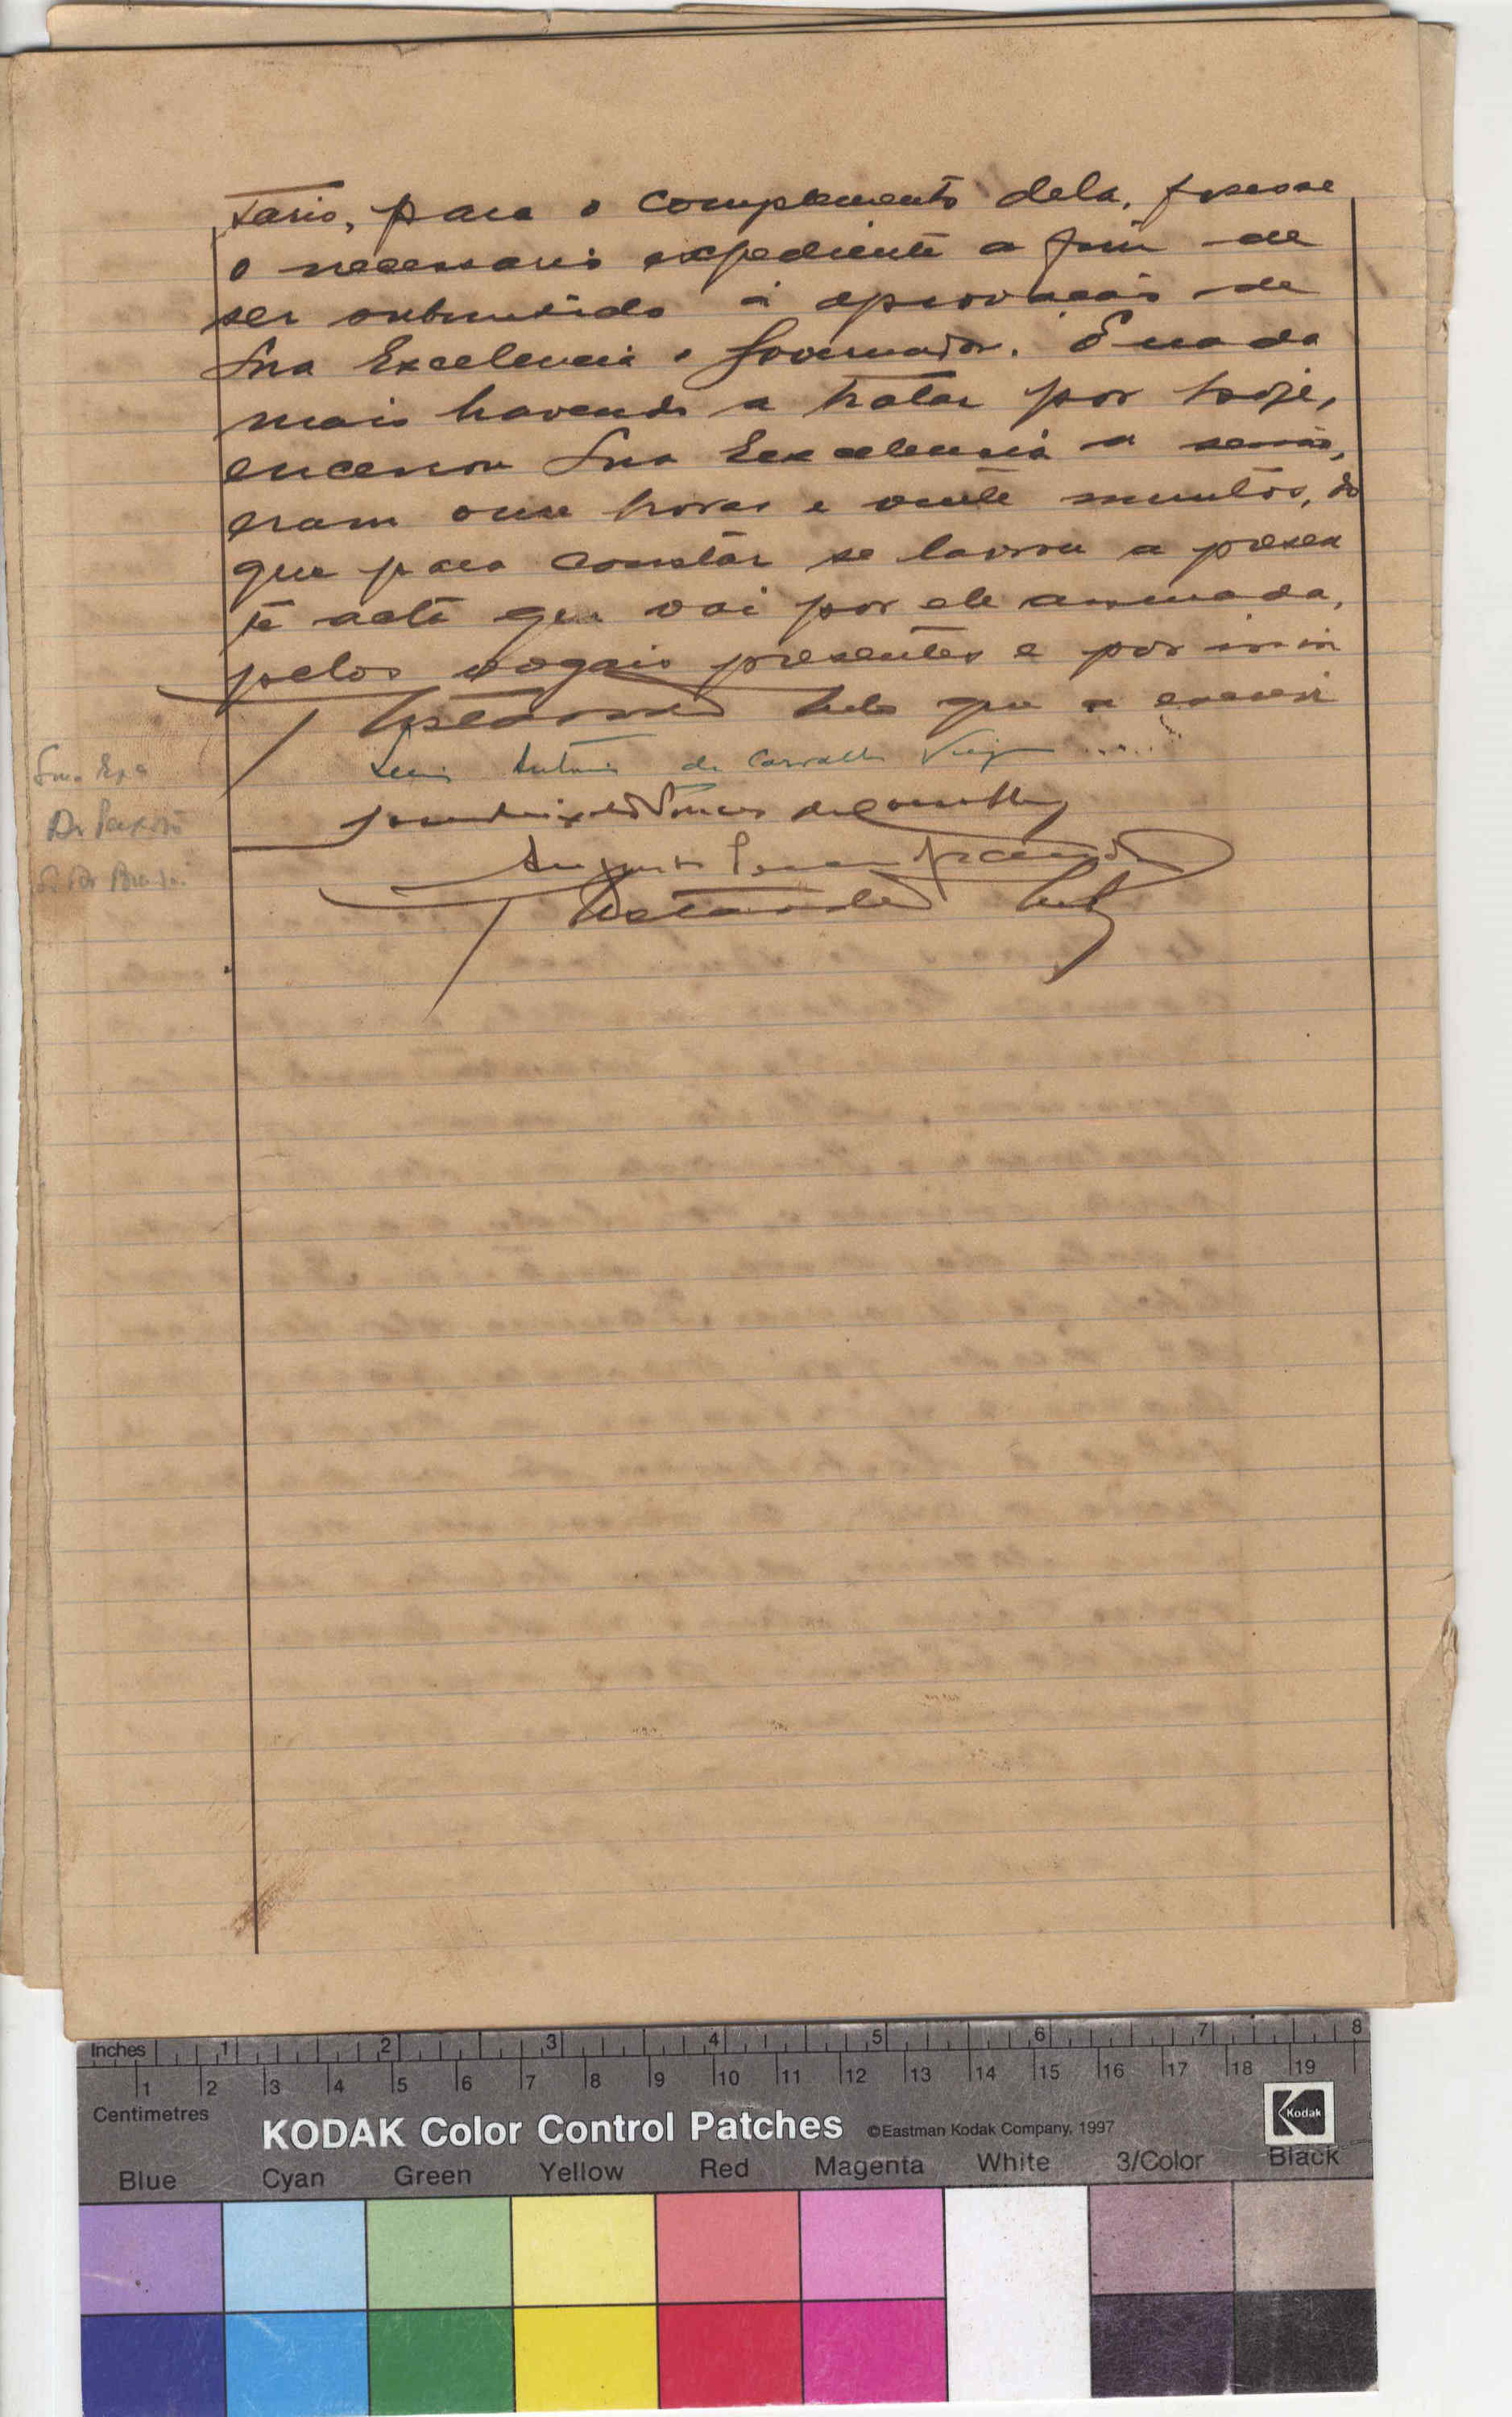 tario, para o complemento dela, fisesse
o necessario expediente a fim de
ser submetido á aprovação de
Sua Excelencia o Governador. E nada
mais havendo a tratar por hoje,
encerrou Sua Excelencia a sessão,
eram onze horas e vinte minutos, do
que para constar se lavrou a presen
te acta que vai por ele assinada,
pelos vogais presentes e por mim
que a escrevi
Luis Antonio de Carvalho Viegas
Augusto
Sua Exa
Dr Peixoto
Dr
Inches 1 2 3 4 5 6 7 8
1 2 3 4 5 6 7 8 9 10 11 12 13 14 15 16 17 18 19
Centimetres
KODAK Color Control Patches ©Eastman Kodak Company, 1997 Kodak
Blue Cyan Green Yellow Red Magenta White 3/Color Black